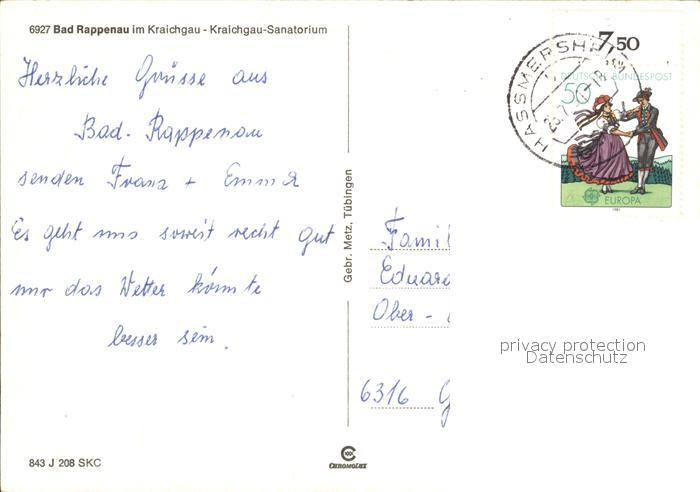 6927 Bad Rappenau im Kraichgau - Kraichgau-Sanatorium
Herzliche Grüsse aus
Bad-Rappenau
senden Franz + Emma
Es geht uns soweit recht gut
nur das Wetter könnte
besser sein.
843 J 208 SKC
Gebr. Metz, Tübingen
CHROMOLUX
7,50
DEUTSCHE BUNDESPOST
50
EUROPA
1981
HASSMERSHEIM
Famil
Eduard
Ober -
6316 G
privacy protection
Datenschutz